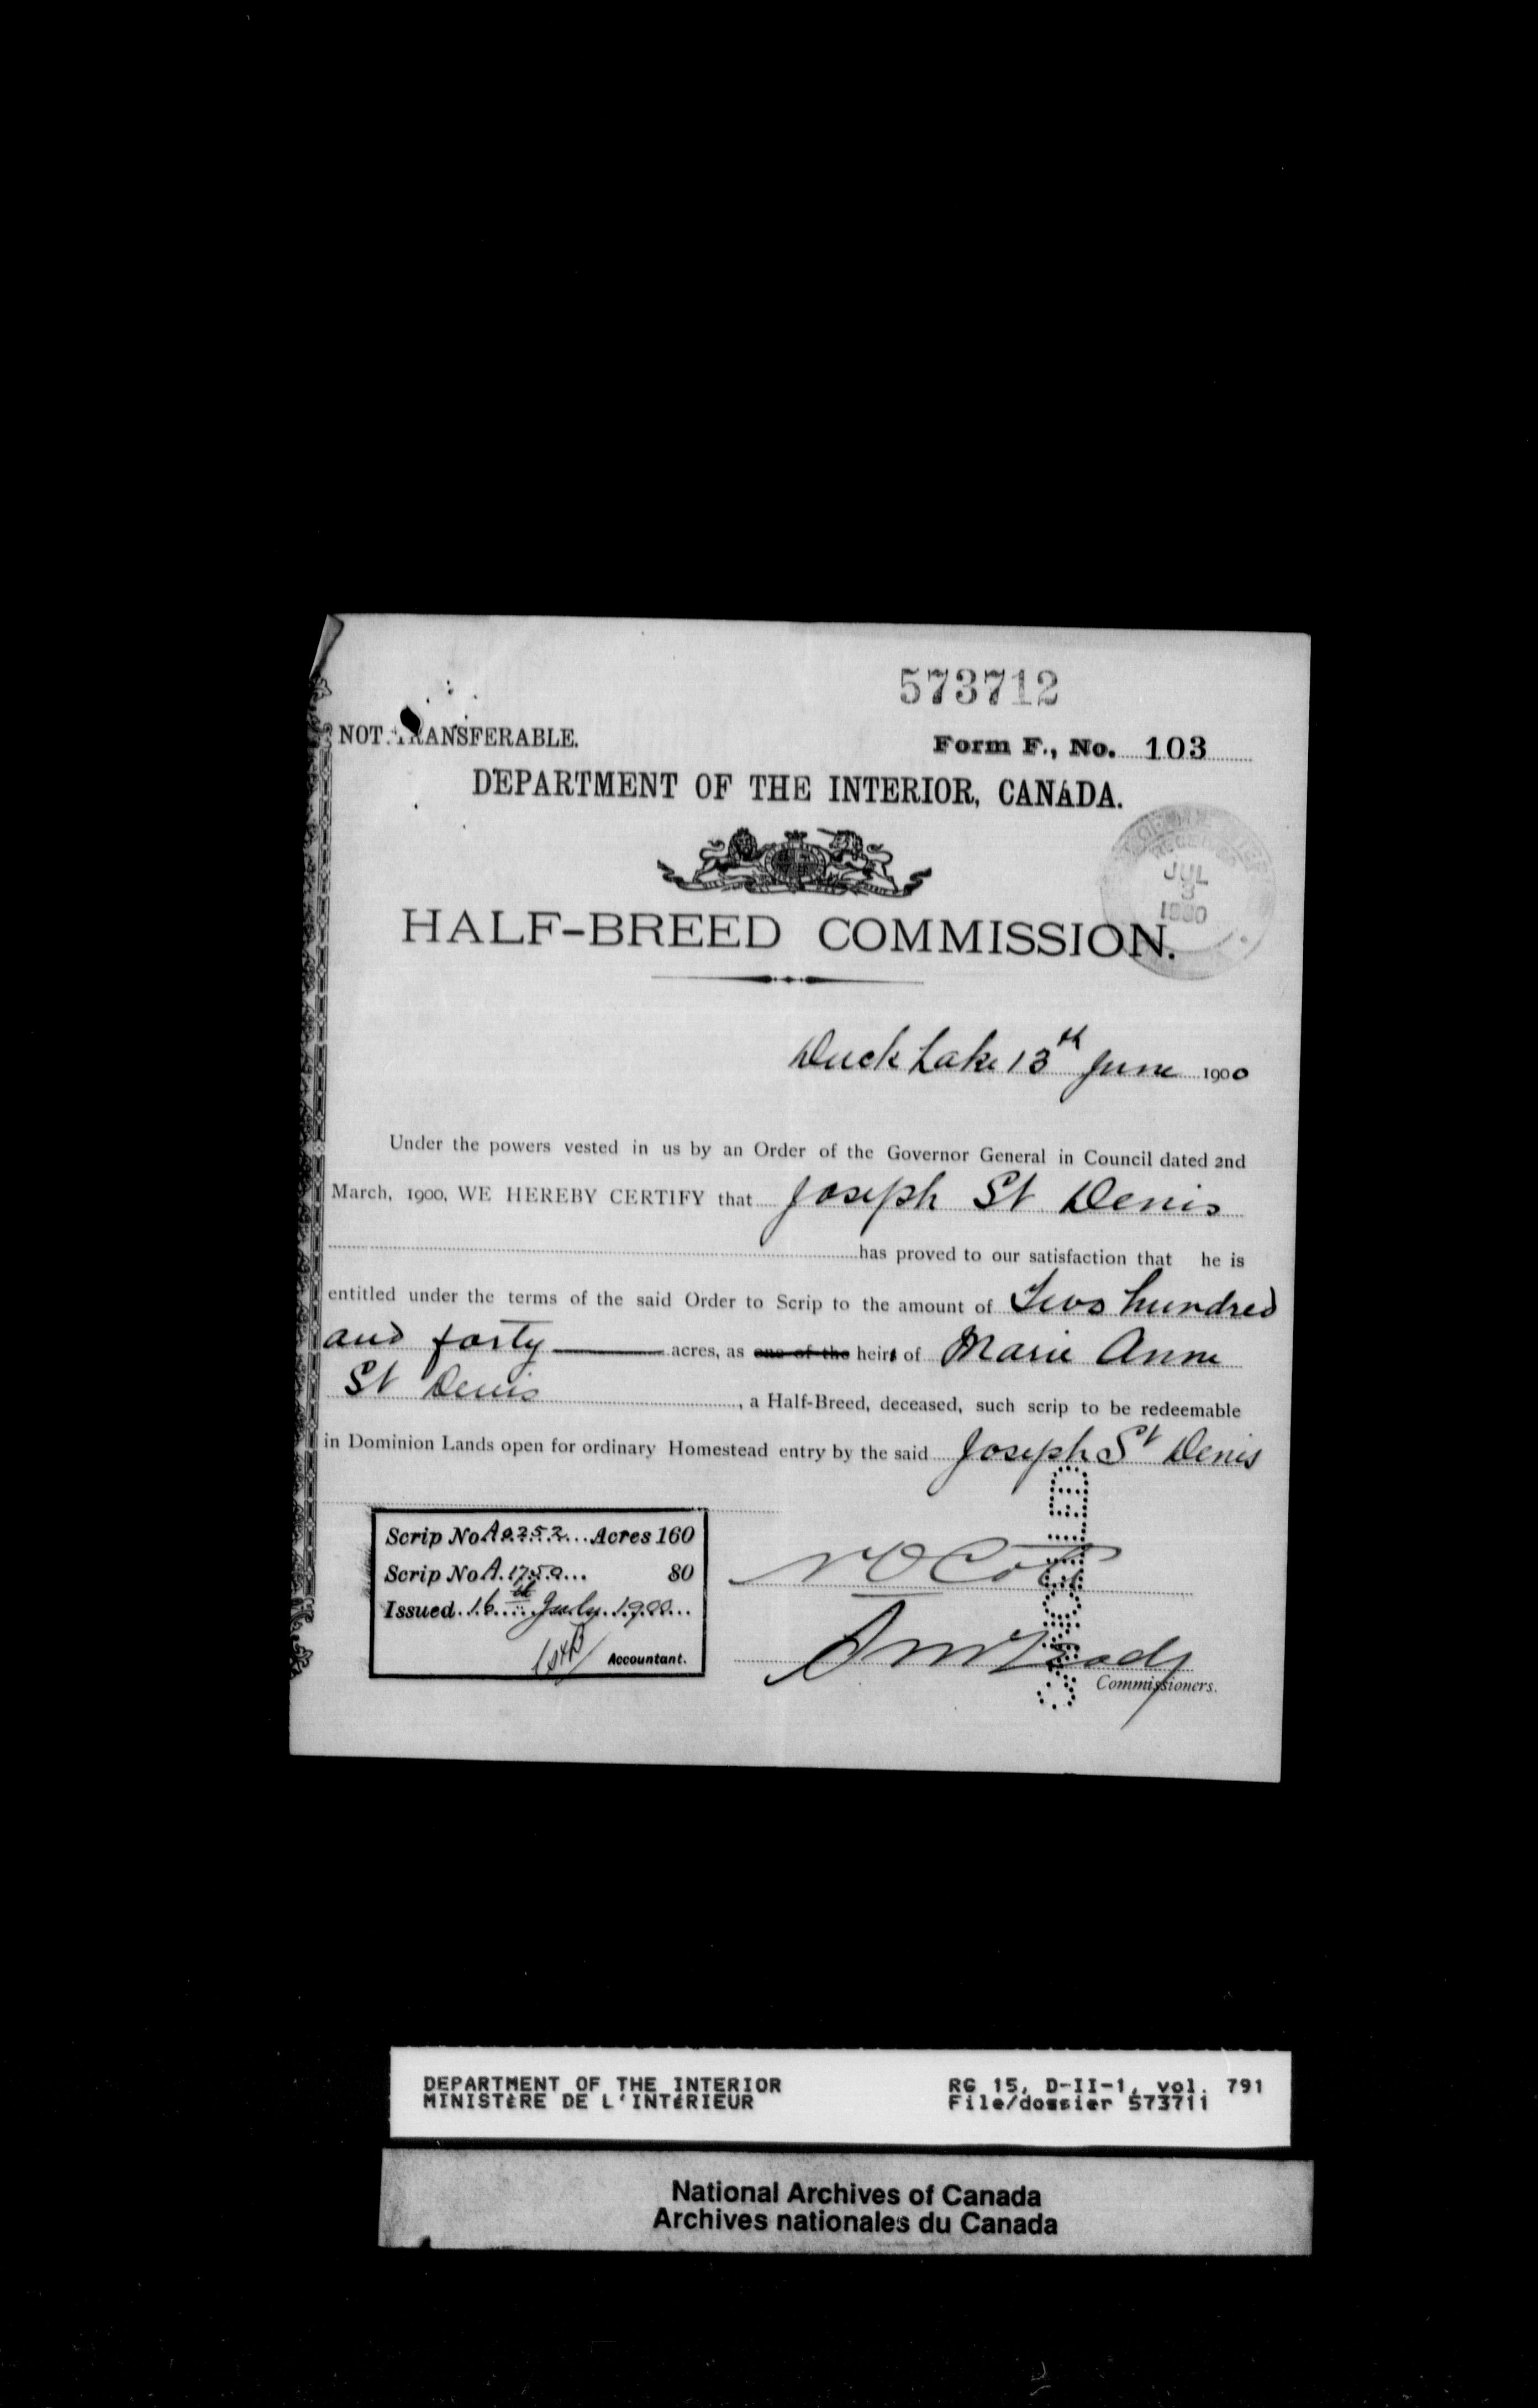 573712
NOT TRANSFERABLE.
Form F., No. 103
DEPARTMENT OF THE INTERIOR, CANADA.
RECEIVED
JUL
3
1900
HALF-BREED COMMISSION.
Duck Lake 13th June 1900
Under the powers vested in us by an Order of the Governor General in Council dated 2nd
March, 1900, WE HEREBY CERTIFY that Joseph St Denis
has proved to our satisfaction that he is
entitled under the terms of the said Order to Scrip to the amount of Two hundred
and forty acres, as one of the heirs of Marie Anne
St Denis, a Half-Breed, deceased, such scrip to be redeemable
in Dominion Lands open for ordinary Homestead entry by the said Joseph St Denis
Scrip No A 0252 Acres 160
Scrip No A. 1750 80
Issued 16th July 1900
Accountant.
Commissioners.
DEPARTMENT OF THE INTERIOR
MINISTÈRE DE L'INTÉRIEUR
RG 15, D-II-1, vol. 791
File/dossier 573711
National Archives of Canada
Archives nationales du Canada